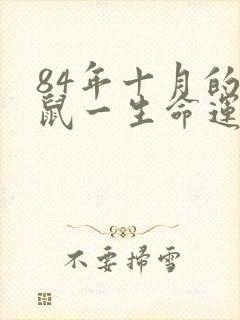 84年十月的
鼠一生命運
不要掃雪